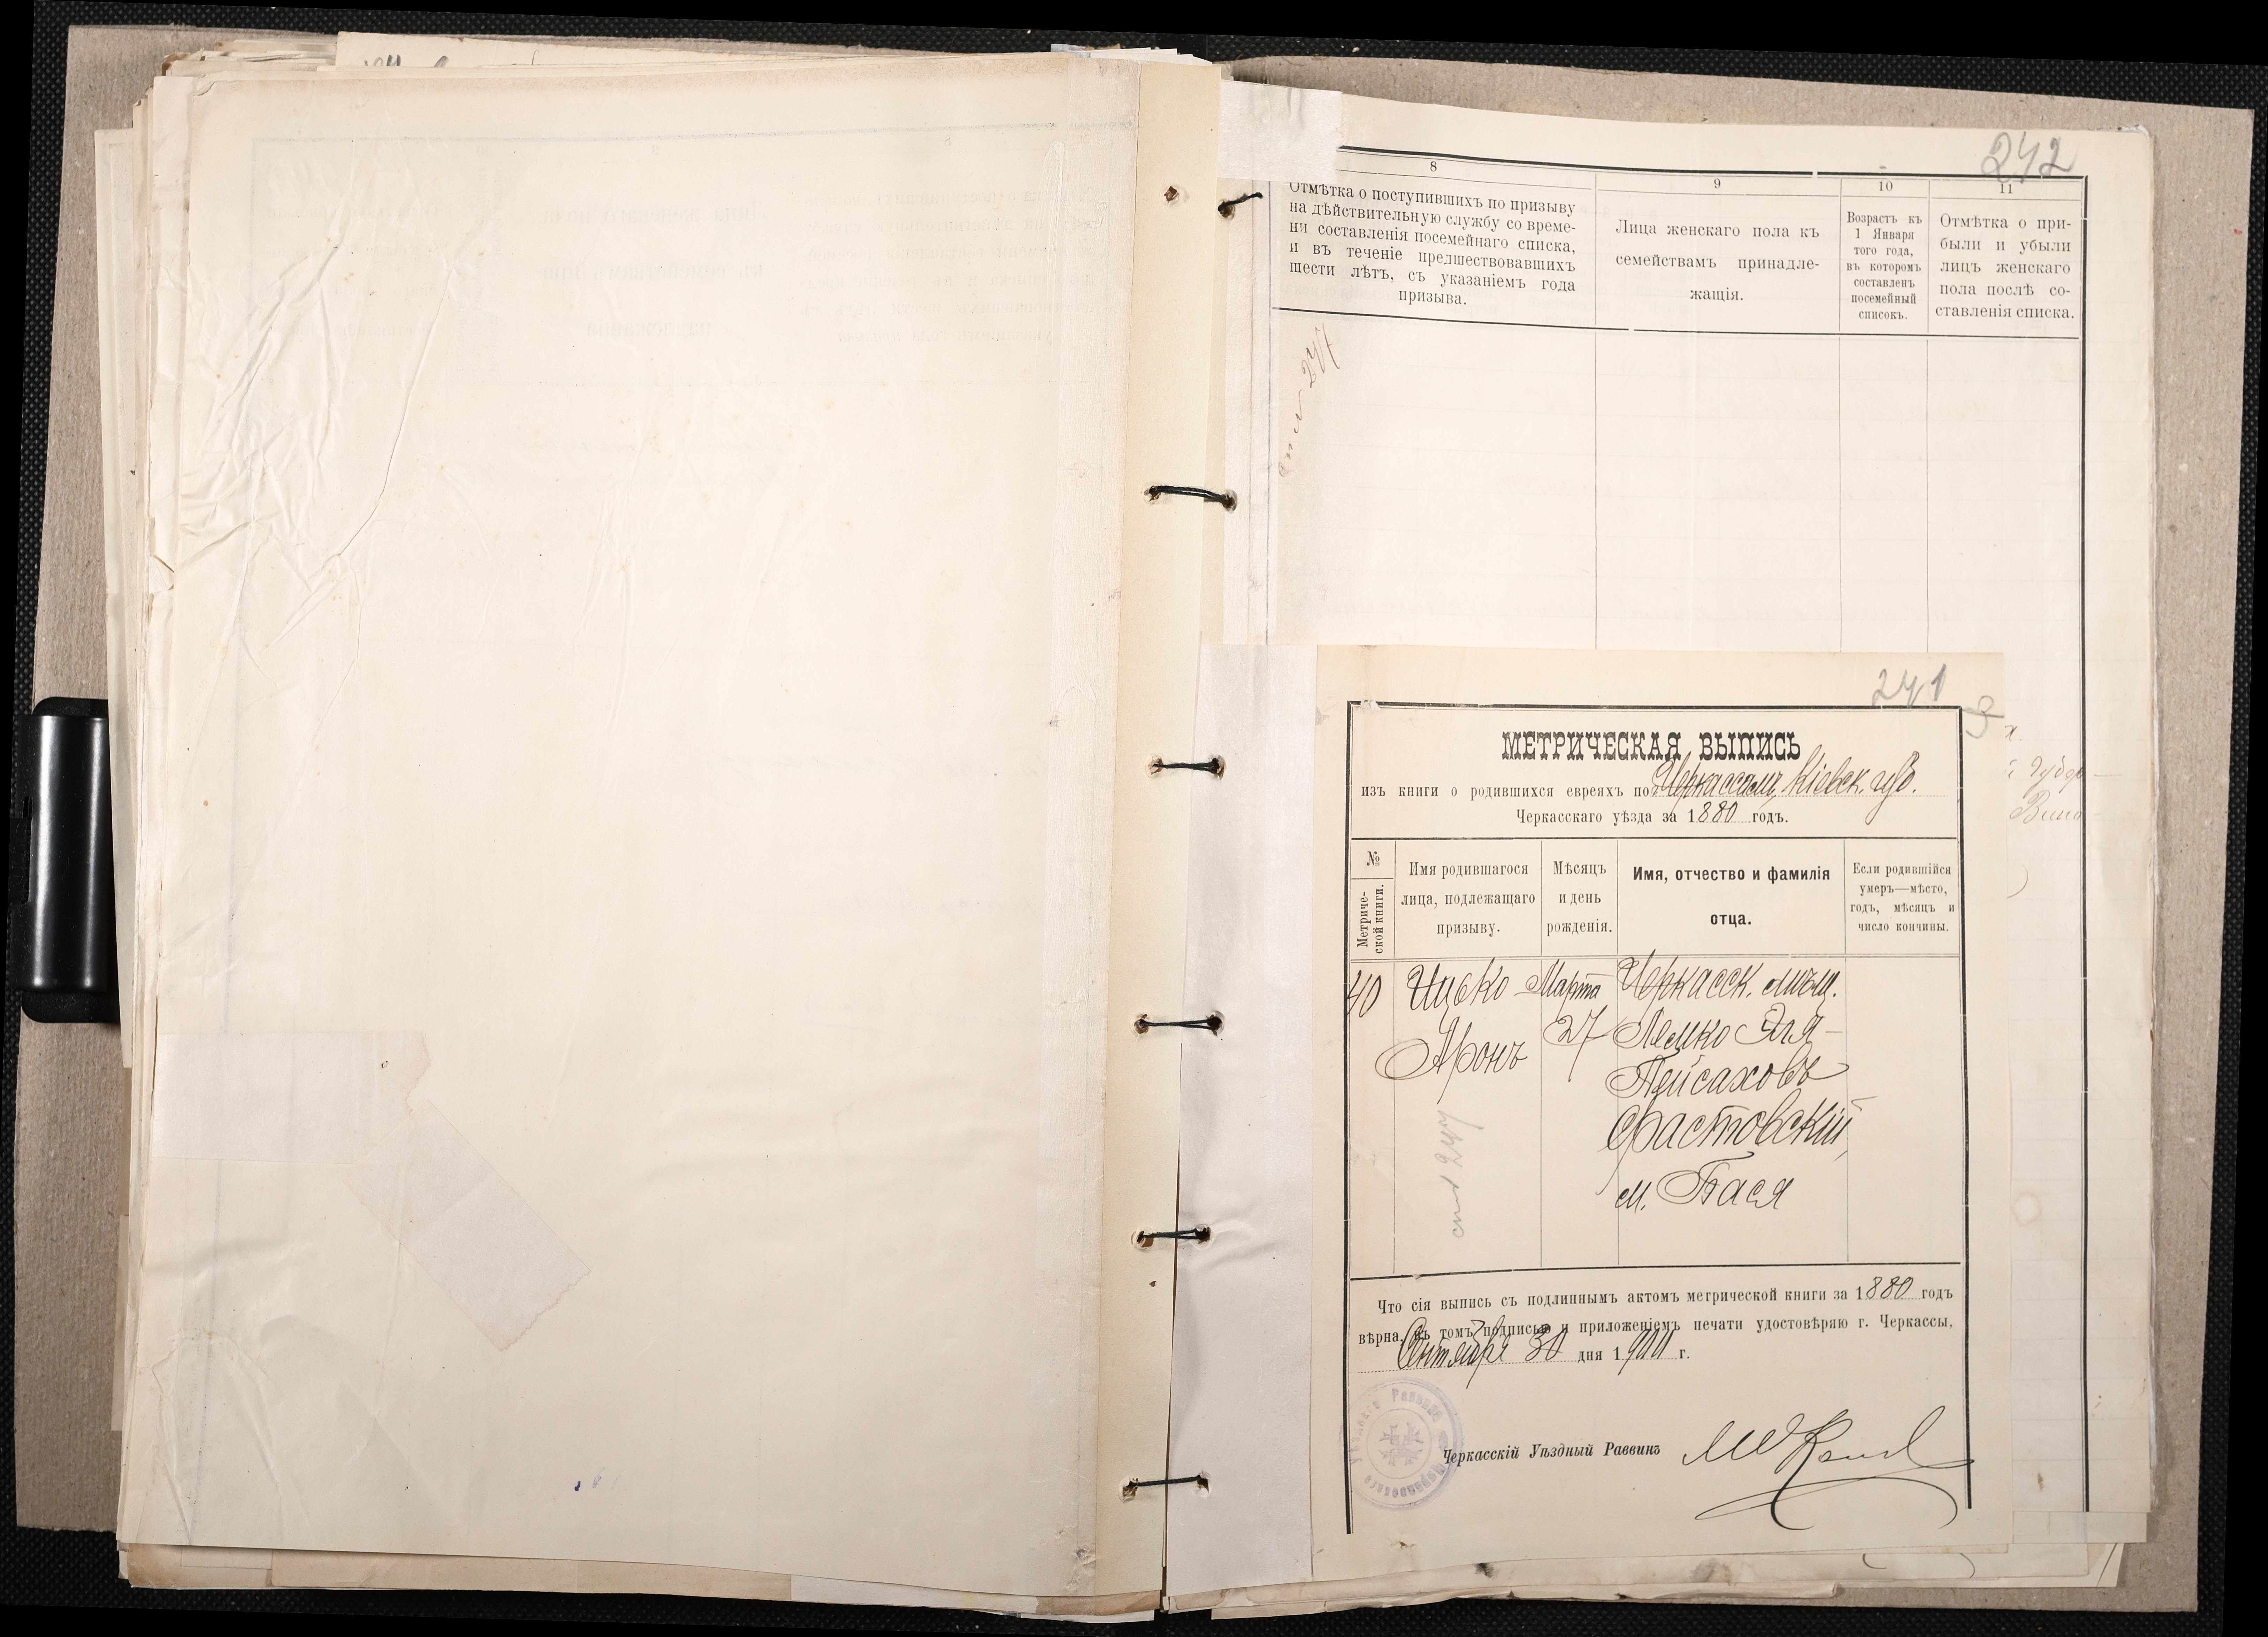 242
8
Отмѣтка о поступившихъ по призыву
на дѣйствительную службу со време-
ни составленія посемейнаго списка,
и въ теченіе предшествовавшихъ
шести лѣтъ, съ указаніемъ года
призыва.
9
Лица женскаго пола къ
семействамъ принадле-
жащія.
10
Возрастъ къ
1 Января
того года,
въ которомъ
составленъ
посемейный
списокъ.
11
Отмѣтка о при-
были и убыли
лицъ женскаго
пола послѣ со-
ставленія списка.
241
3
МЕТРИЧЕСКАЯ ВЫПИСЬ
изъ книги о родившихся евреяхъ по г. Черкассамъ, Кіевск. губ.
Черкасскаго уѣзда за 1880 годъ.
№
Метриче-
ской книги.
Имя родившагося
лица, подлежащаго
призыву.
Мѣсяцъ
и день
рожденія.
Имя, отчество и фамилія
отца.
Если родившійся
умеръ—мѣсто,
годъ, мѣсяцъ и
число кончины.
40
Ицько
Аронъ
Марта
27
Черкасск. мѣщ.
Лемко Эля-
Пейсаховъ
Фастовскій,
м. Бася
Что сія выпись съ подлиннымъ актомъ метрической книги за 1880 годъ
вѣрна, въ томъ подписью и приложеніемъ печати удостовѣряю г. Черкассы,
Сентября 30 дня 1900 г.
Черкасскій Уѣздный Раввинъ